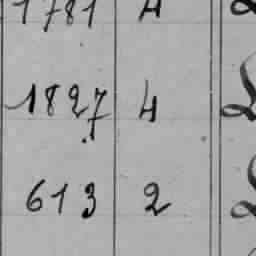 1781 4
1827 4
613 2